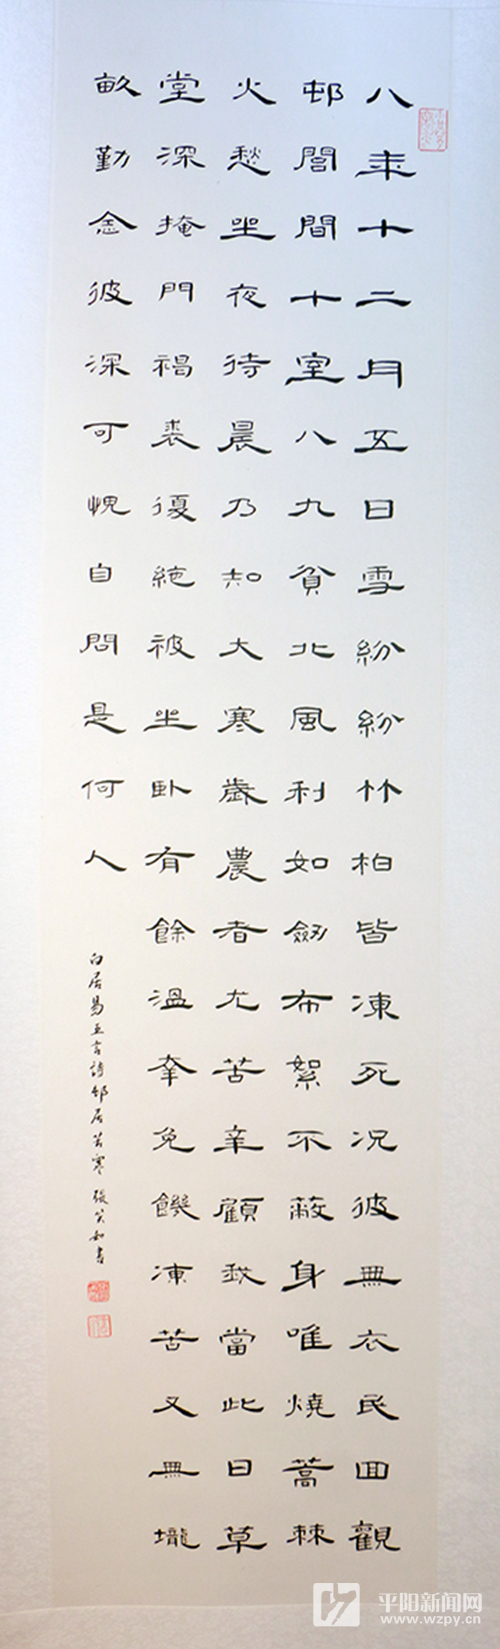 八年十二月五日雪紛紛竹柏皆凍死况彼無衣民回觀
邨閭間十室八九貧北風利如劒布絮不蔽身唯燒蒿棘
火愁坐夜待晨乃知大寒歲農者尤苦辛顧我當此日草
堂深掩門褐裘復絁被坐卧有餘溫幸免饑凍苦又無壠
畝勤念彼深可愧自問是何人
白居易五言詩邨居苦寒 張笑如書
平阳新闻网
www.wzpy.cn